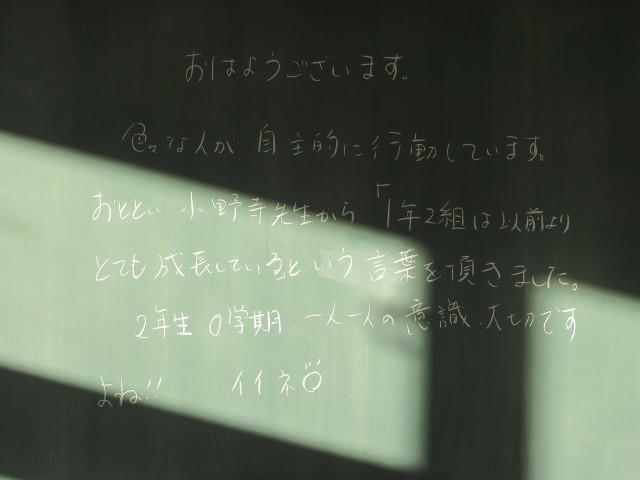 おはようございます。
色々な人が自主的に行動しています。
おととい小野寺先生から「1年2組は以前より
とても成長しているという言葉を頂きました。
2年生0学期、一人一人の意識、大切です
よね!! イイネ